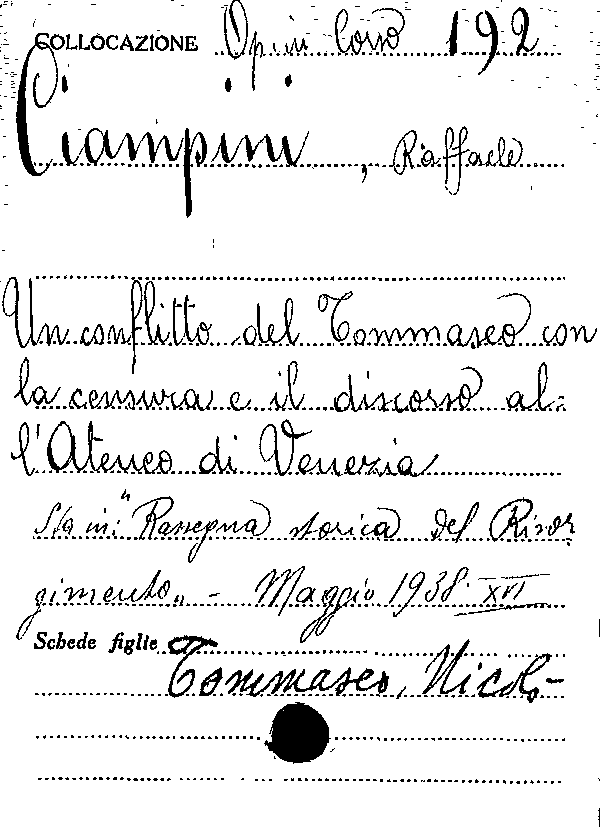 COLLOCAZIONE Opus Corsò 192
Ciampini, Raffaele
Un conflitto del Tommaseo con
la censura e il discorso al-
l'Ateneo di Venezia
Sta in: "Rassegna storica del Risor
gimento" - Maggio 1938. XVI
Schede figlie
Tommaseo, Nicolò-